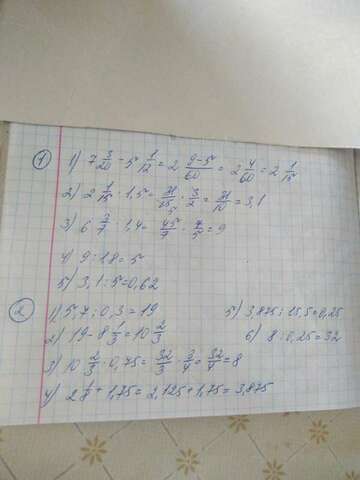 1) 1) 7 3/20 - 5 1/12 = 2 (9-5)/60 = 2 4/60 = 2 1/15
2) 2 1/15 · 1,5 = 31/15 · 3/2 = 31/10 = 3,1
3) 6 3/7 : 1,4 = 45/7 : 7/5 = 9
4) 9 : 1,8 = 5
5) 3,1 : 5 = 0,62
2) 1) 5,7 : 0,3 = 19
2) 19 - 8 1/3 = 10 2/3
3) 10 2/3 · 0,75 = 32/3 · 3/4 = 32/4 = 8
4) 2 1/8 + 1,75 = 2,125 + 1,75 = 3,875
5) 3,875 : 15,5 = 0,25
6) 8 : 0,25 = 32